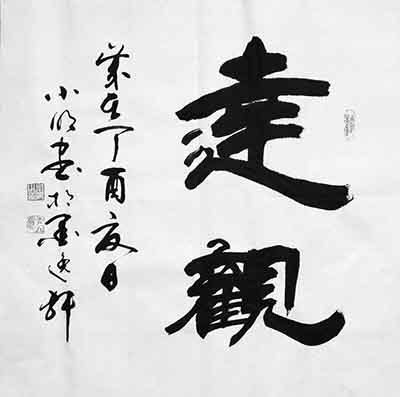 達觀
歲在丁酉夏日
小明書於墨逸軒